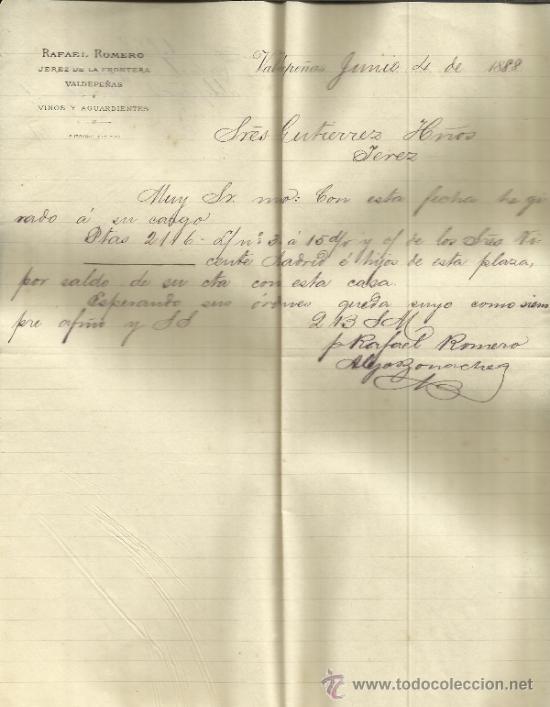 RAFAEL ROMERO
JEREZ DE LA FRONTERA
VALDEPEÑAS
VINOS Y AGUARDIENTES
Valdepeñas Junio 4 de 1888
Sres Gutierrez Hños
Jerez
Muy Sr. mo: Con esta fecha he gi
rado á su cargo
Ptas 2116 - L/ nº 3 á 15 d/v y o/ de los Sres Vi
cente Madrid é hijos de esta plaza,
por saldo de su cta con esta casa.
Esperando sus órdenes queda suyo como siem
pre afmo y SS
2 B S M
p Rafael Romero
todocoleccion
www.todocoleccion.net